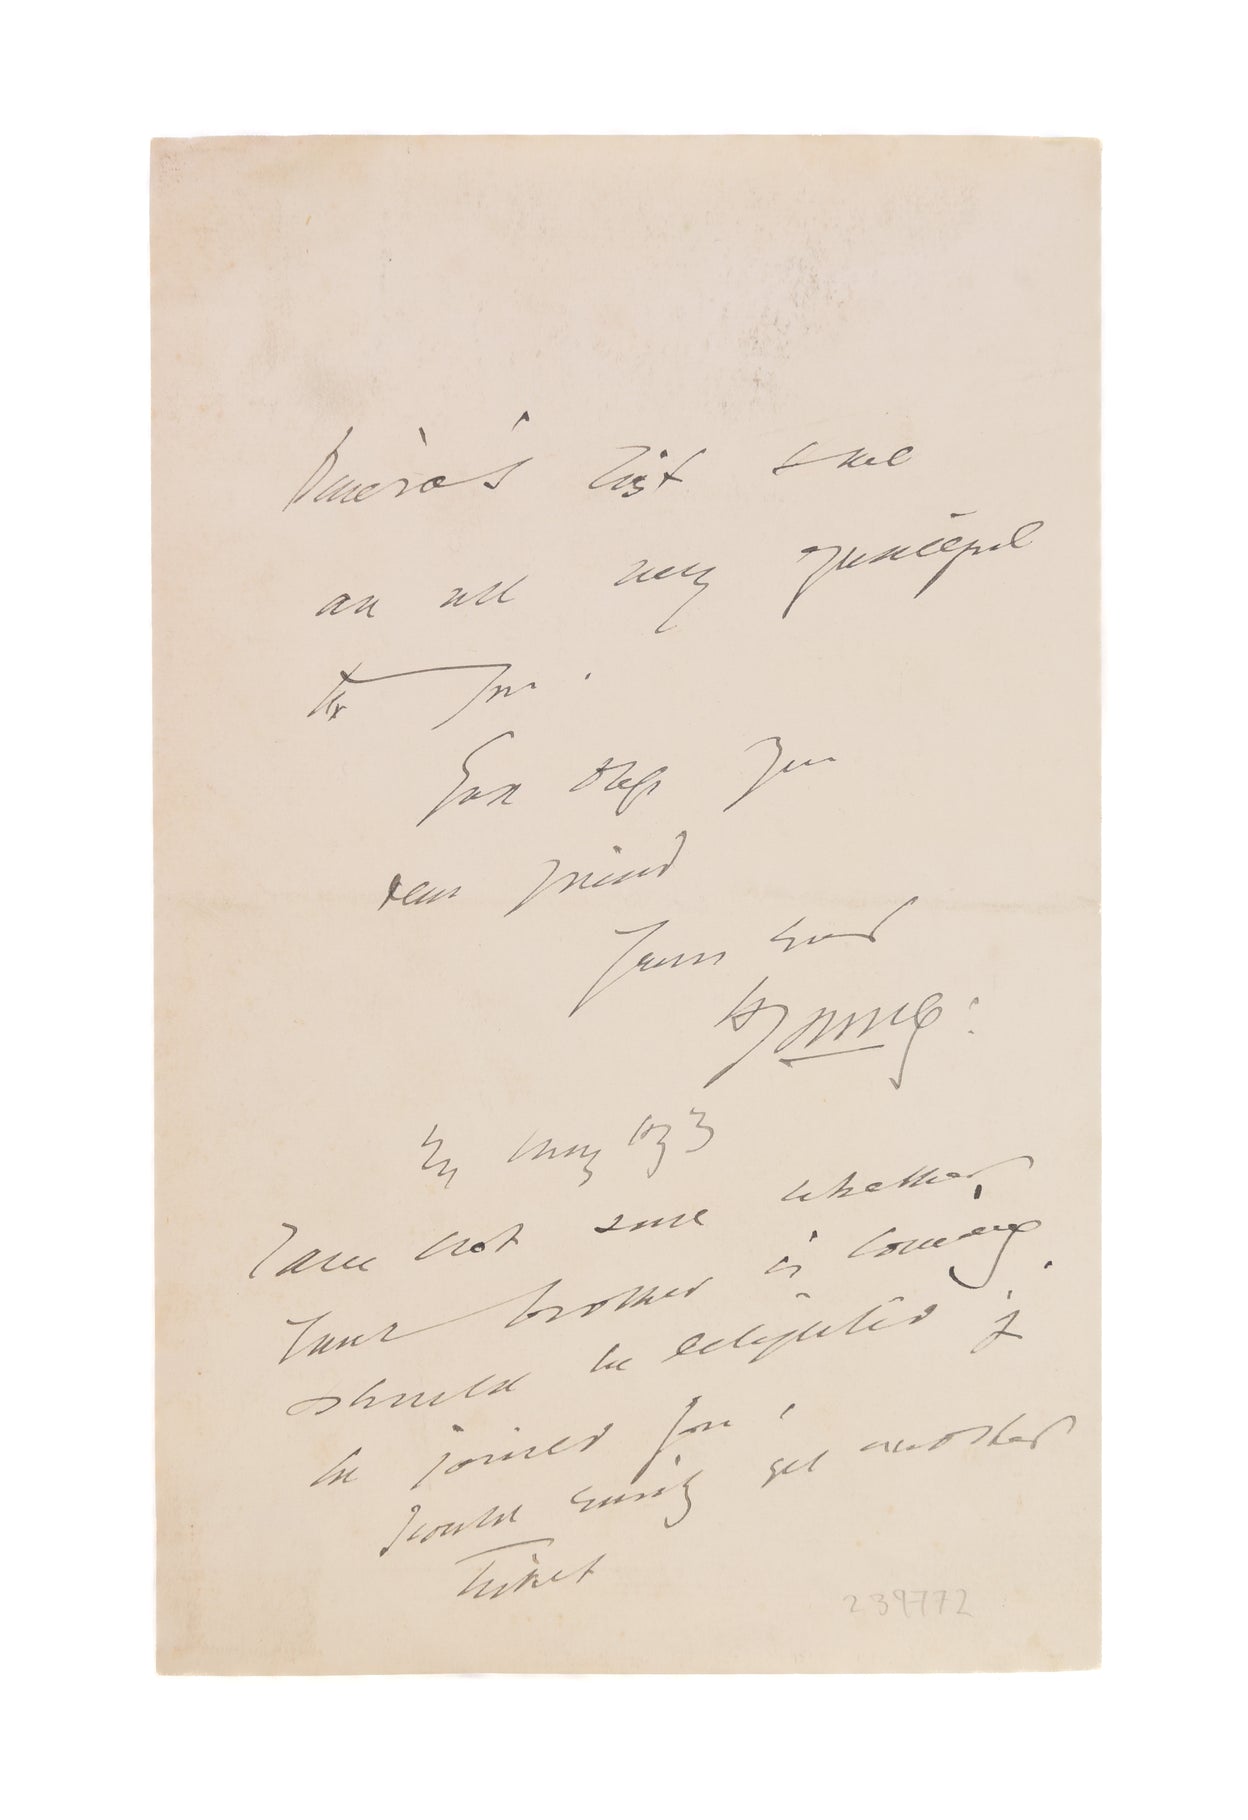 list &
are all very grateful
to you.
God bless you
dear friend
Yours ever
HIrving:
May
I am not sure whether
your brother is coming.
should be delighted if
he joined you!
I could easily get another
Ticket
239772